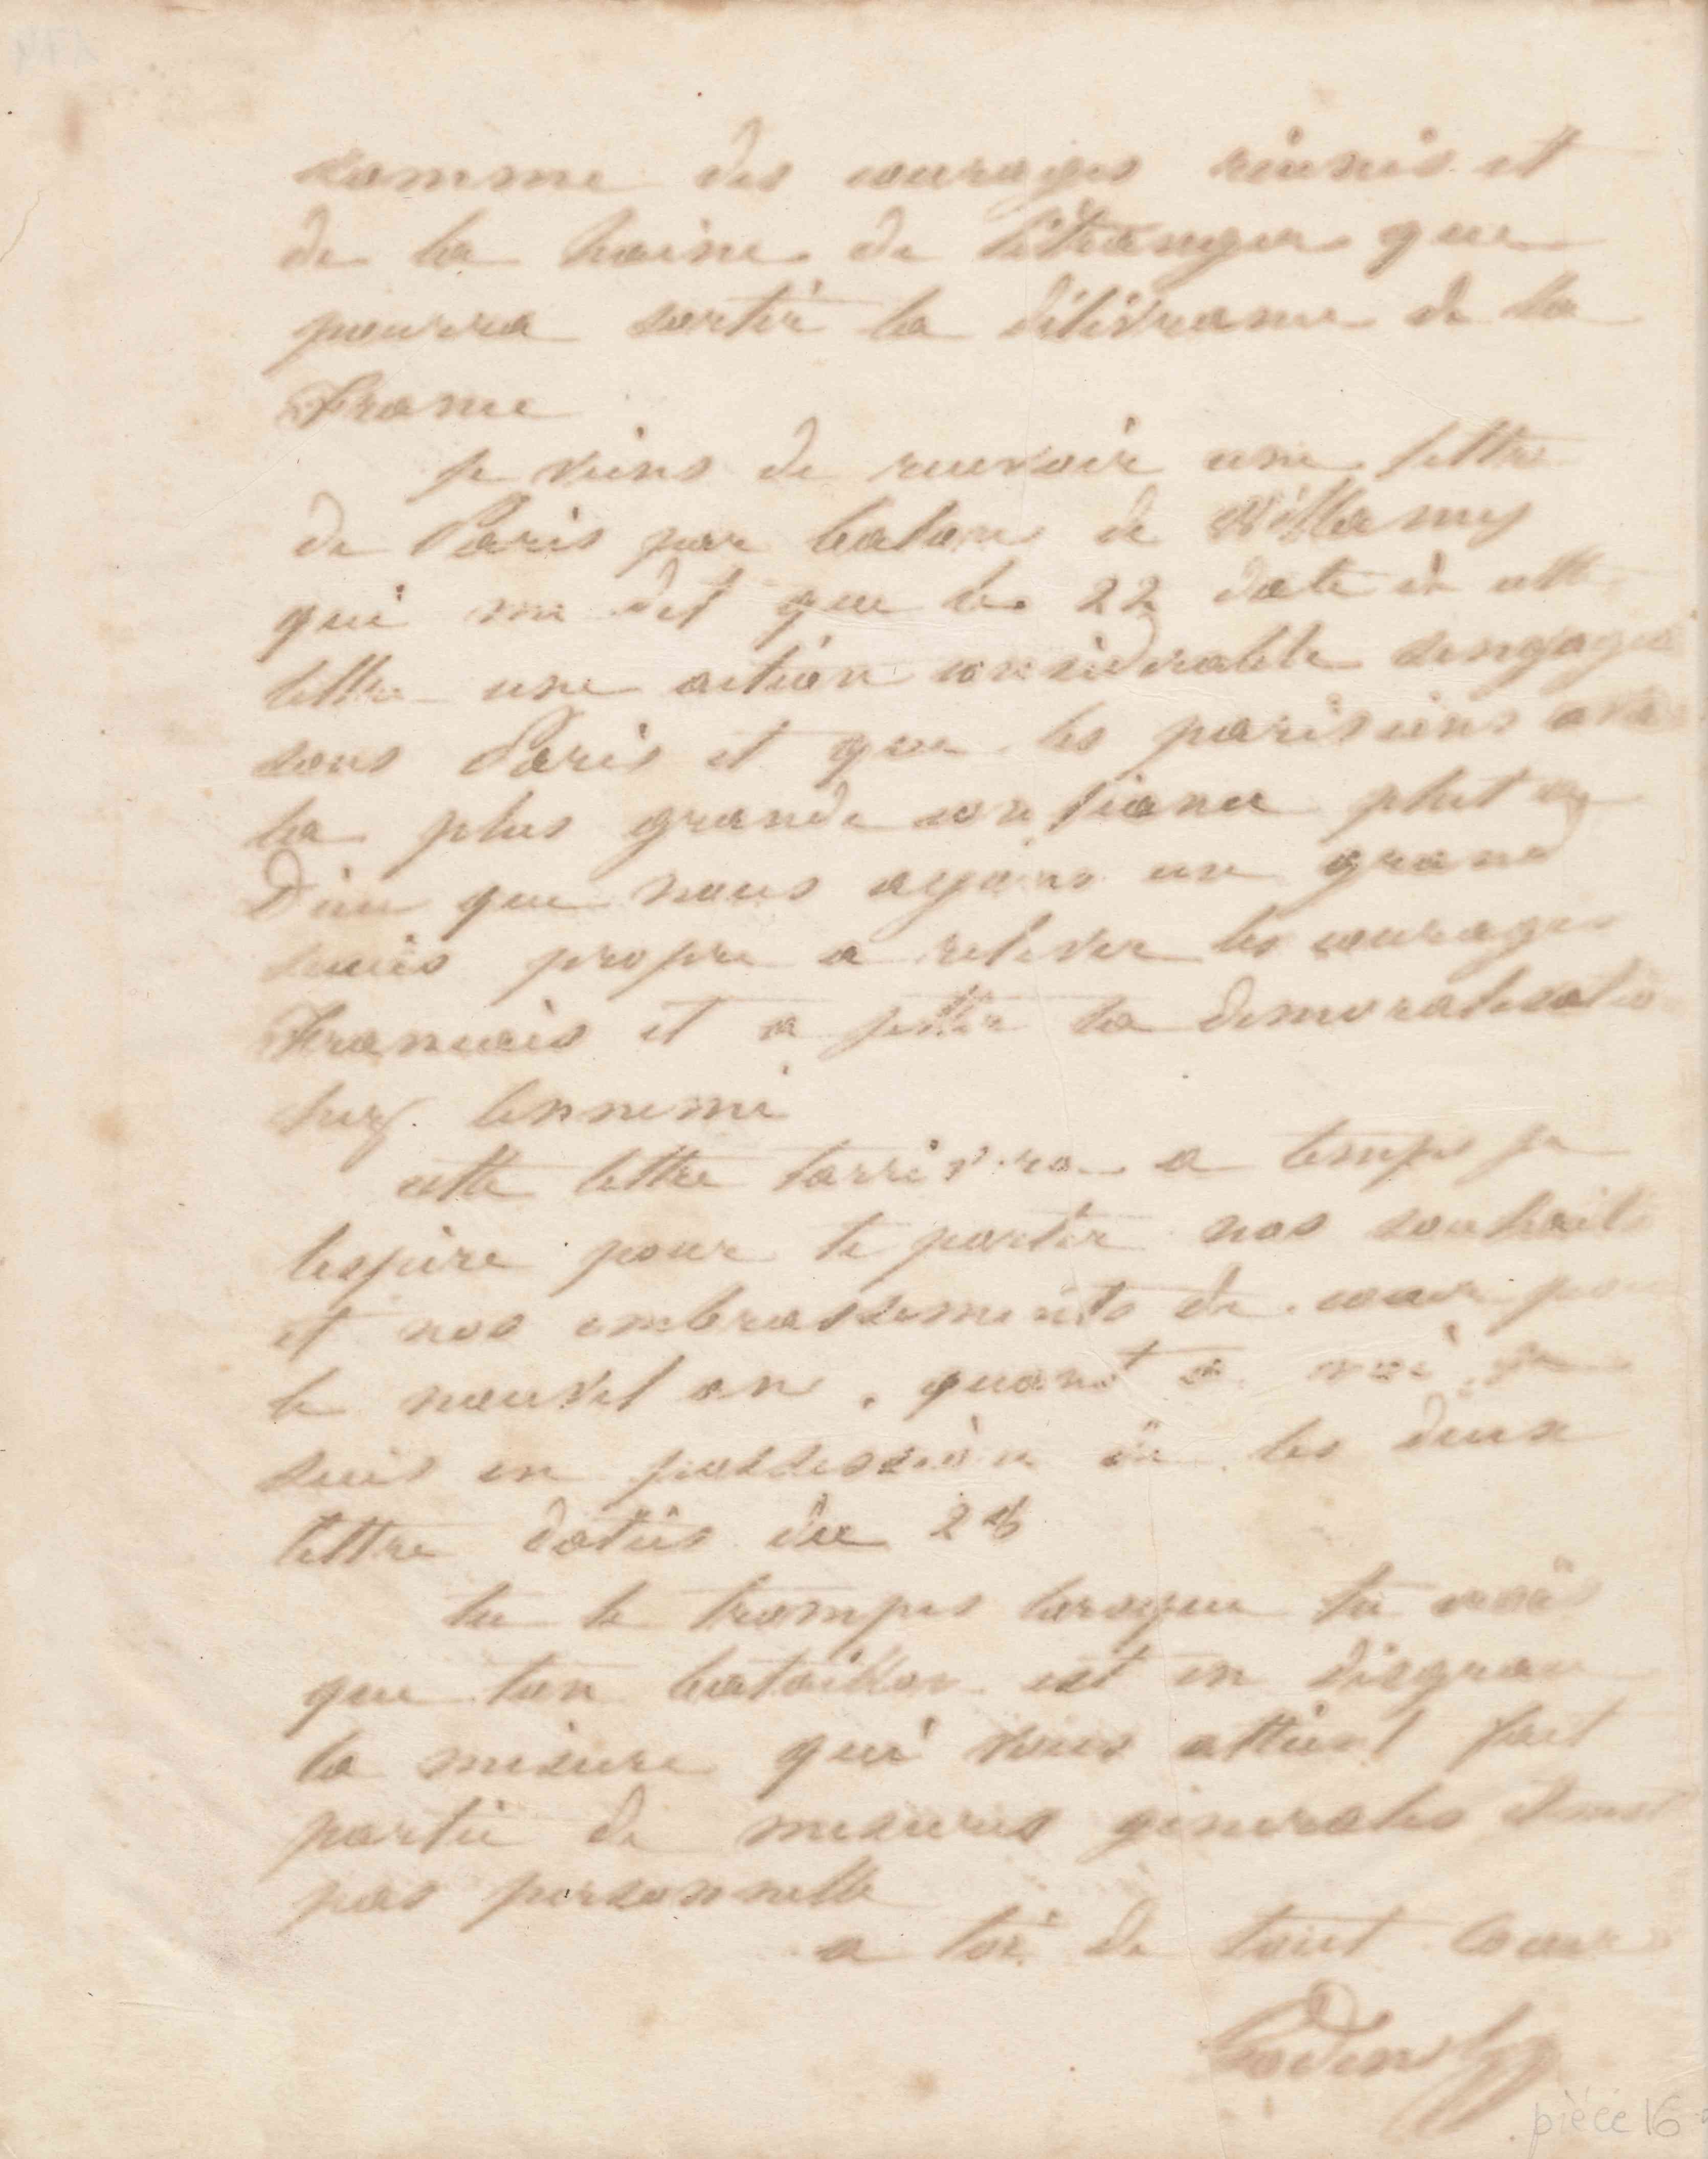 somme des courages réunis et
de la haine de létranger que
pourra sortir la délivrance de la
France
je viens de recevoir une lettre
de Paris par balon de Willamy
qui me dit que le 22 date de cette
lettre une action considerable sengage
sous Paris et que les parisiens
la plus grande confiance plut a
Dieu que nous ayions un grand
succès propre a relever les courages
Francais et a jetter la demoralisatio
chez lennemi
cette lettre tarrivera a temps je
lespère pour te porter nos souhaits
et nos embrassements de cœur
le nouvel an, quant a moi je
suis en possession de tes deux
lettre datées du 28
tu te trompes lorsque tu crois
que ton bataillon est en disgrace
la mesure qui vous atteint fait
partie de mesures generales
pas personnelle
a toi de tout cœur
Godin
pièce 16